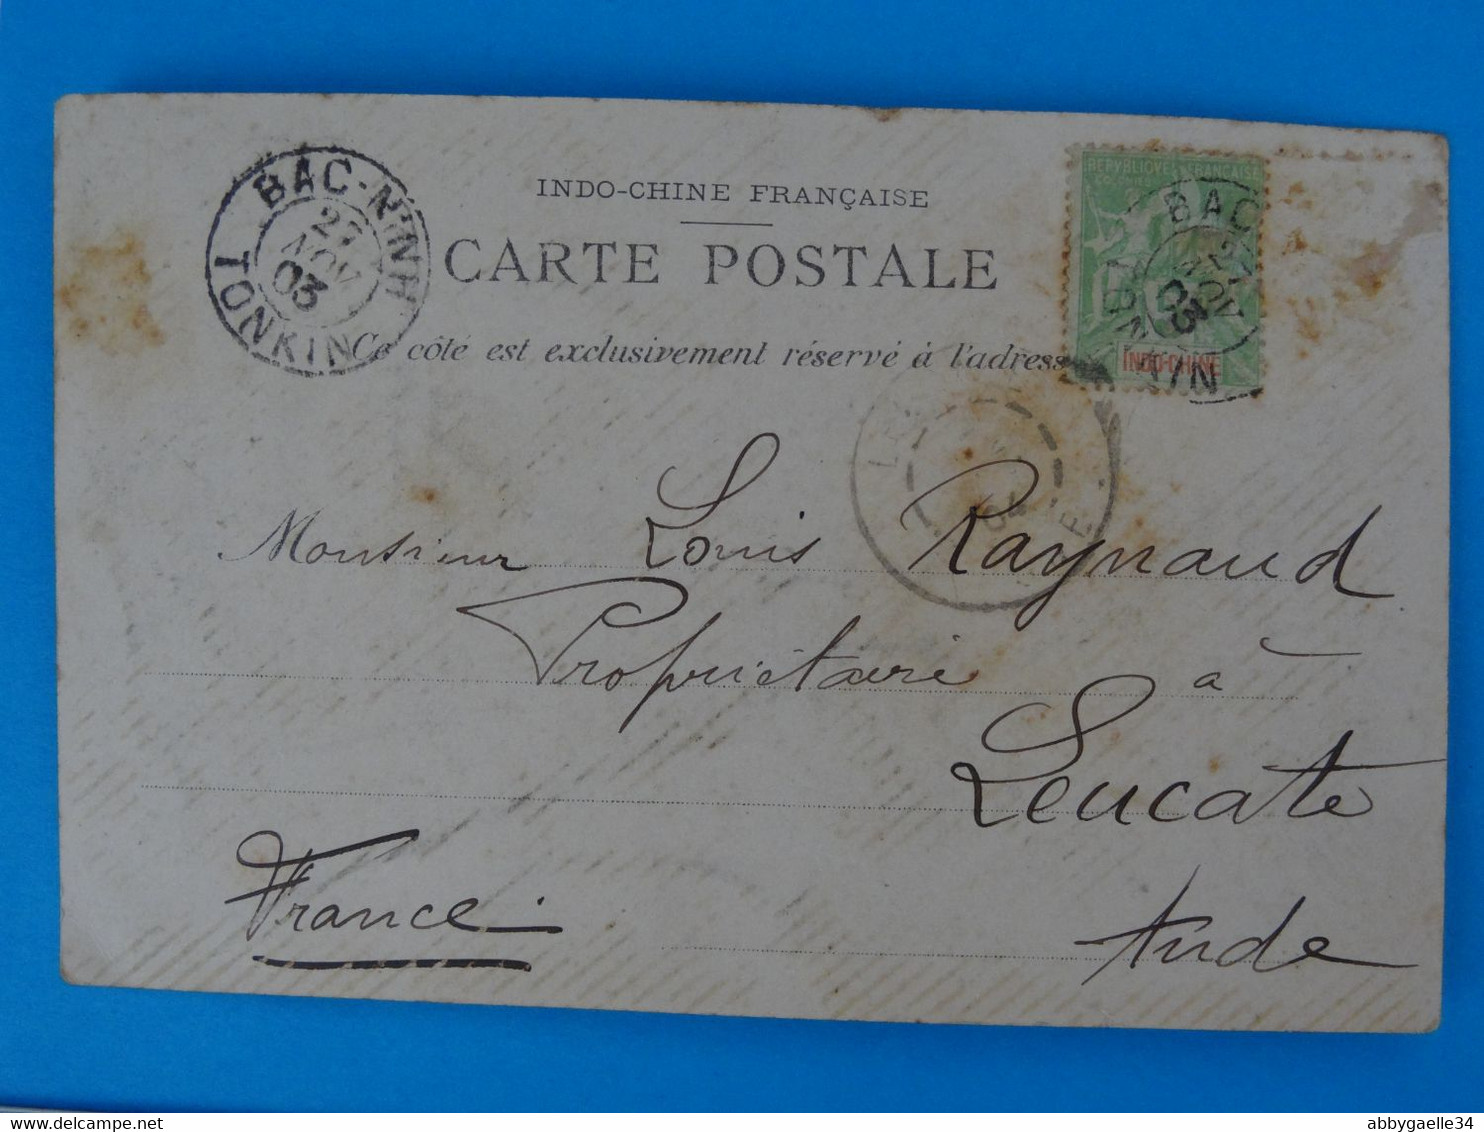 INDO-CHINE FRANÇAISE
CARTE POSTALE
Ce côté est exclusivement réservé à l'adresse
BAC-NINH
27
NOV
03
TONKIN
REPVBLIQVE FRANÇAISE
INDO-CHINE
BAC
NOV
03
NIN
Monsieur Louis Raynaud
Propriétaire à
Leucate
France. Aude
abbygaelle34